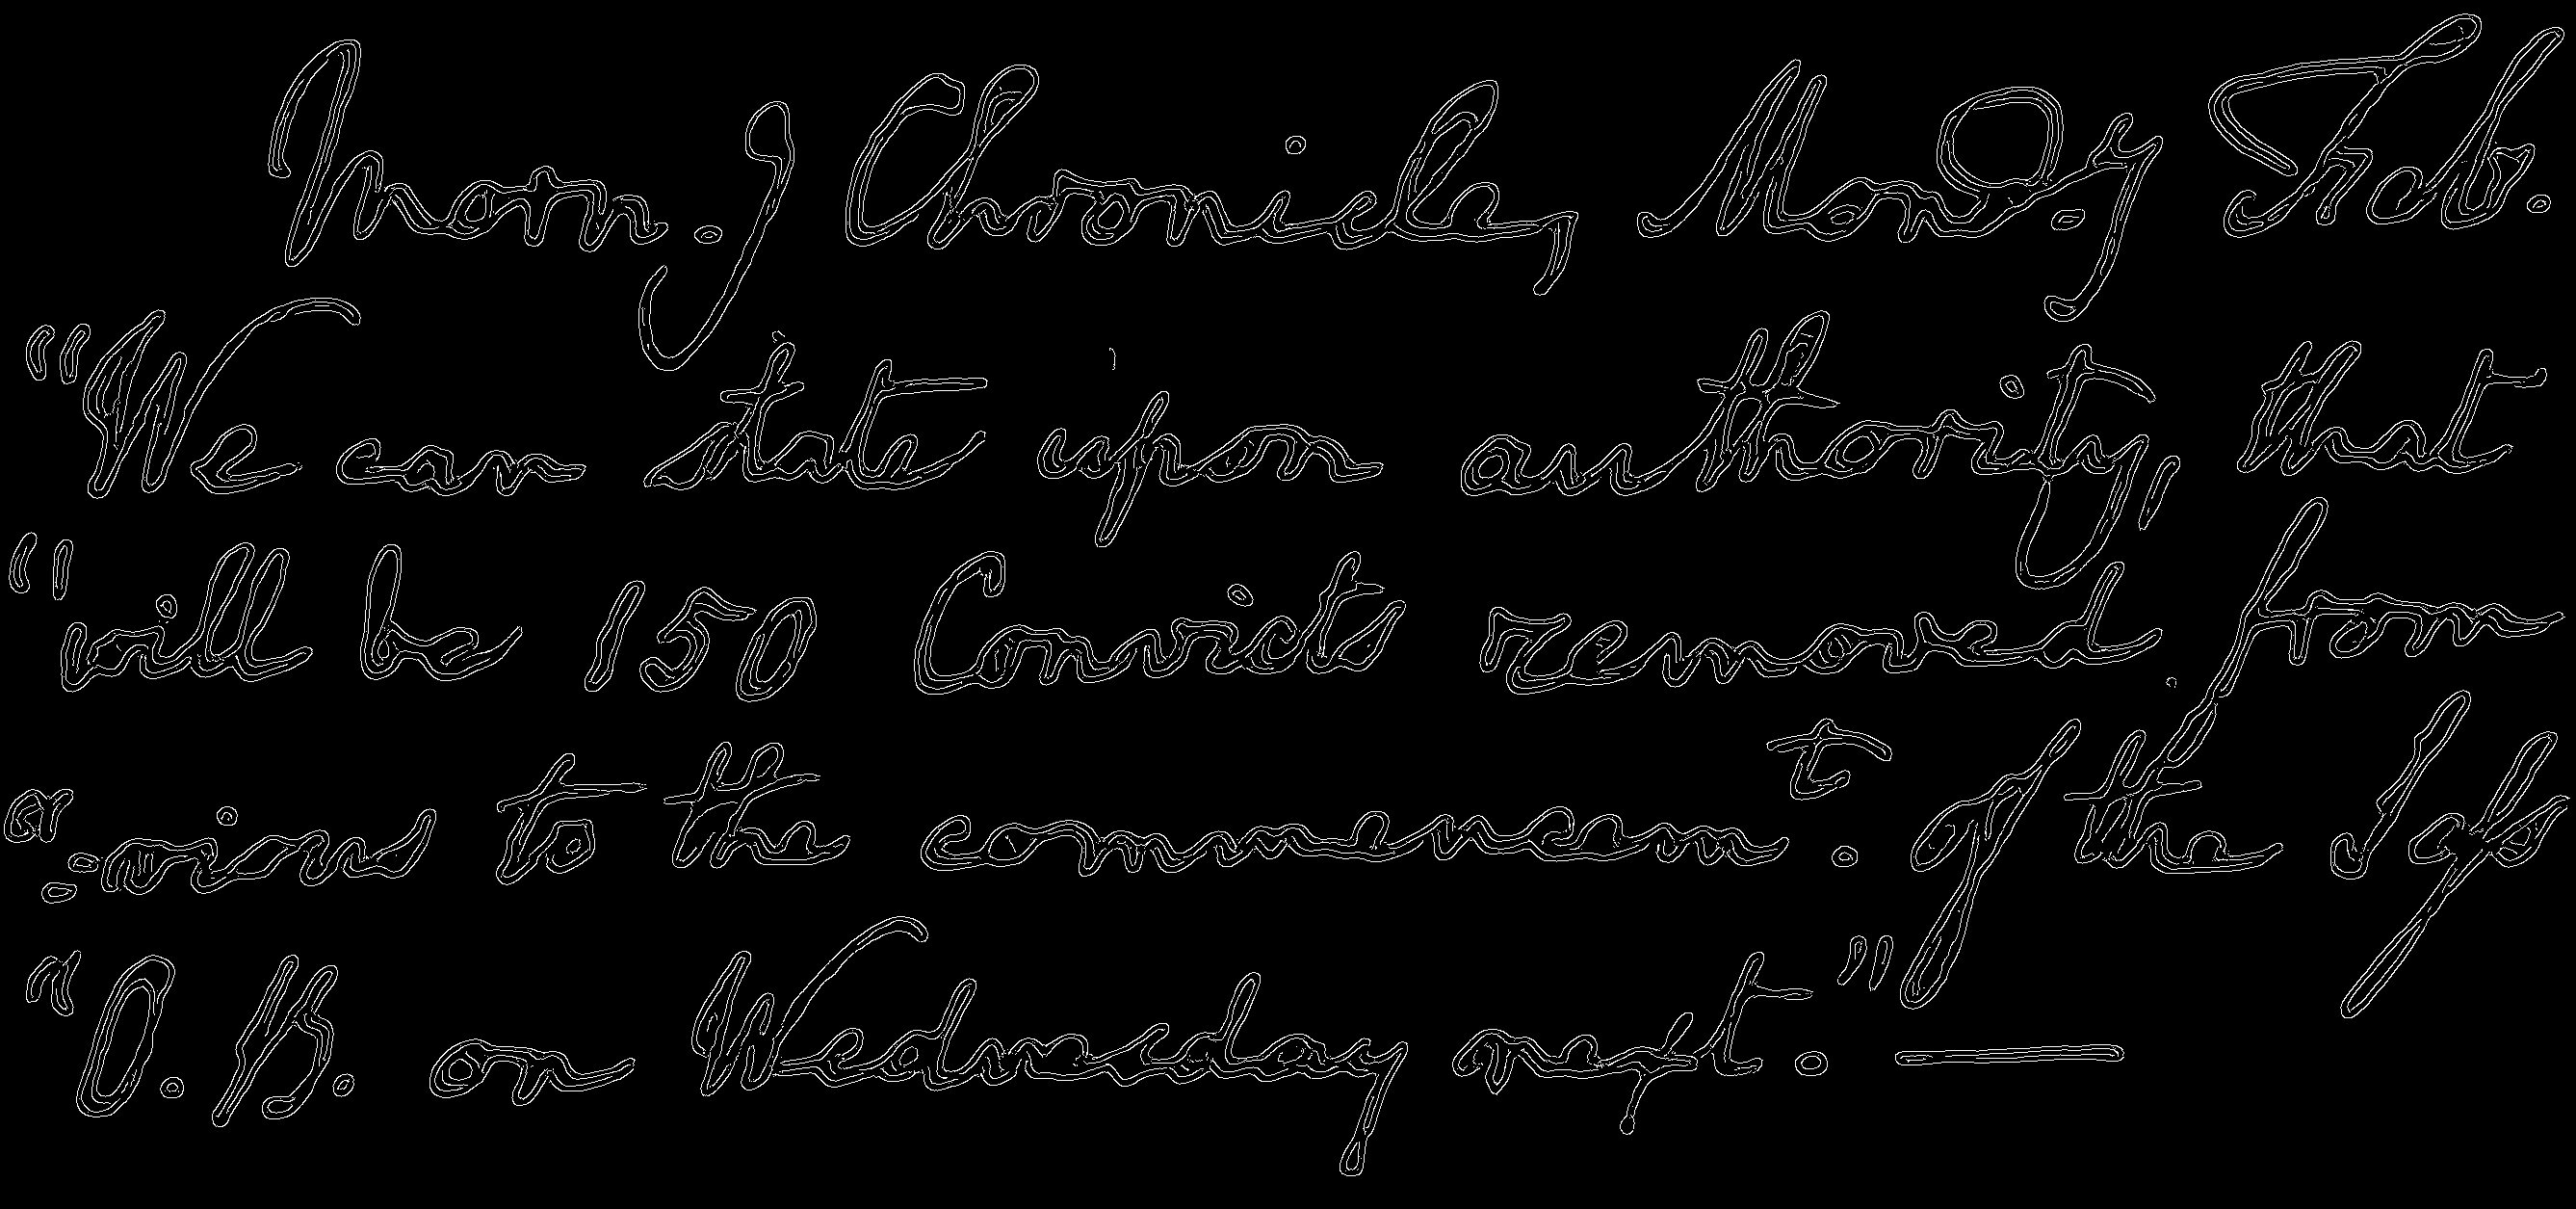 Morn.g Chronicle, Mond.y Feb.
"We can state upon authority, that
"will be 150 Convicts removed from
"-vious to the commencem.t of the
"O. B. on Wednesday next." —